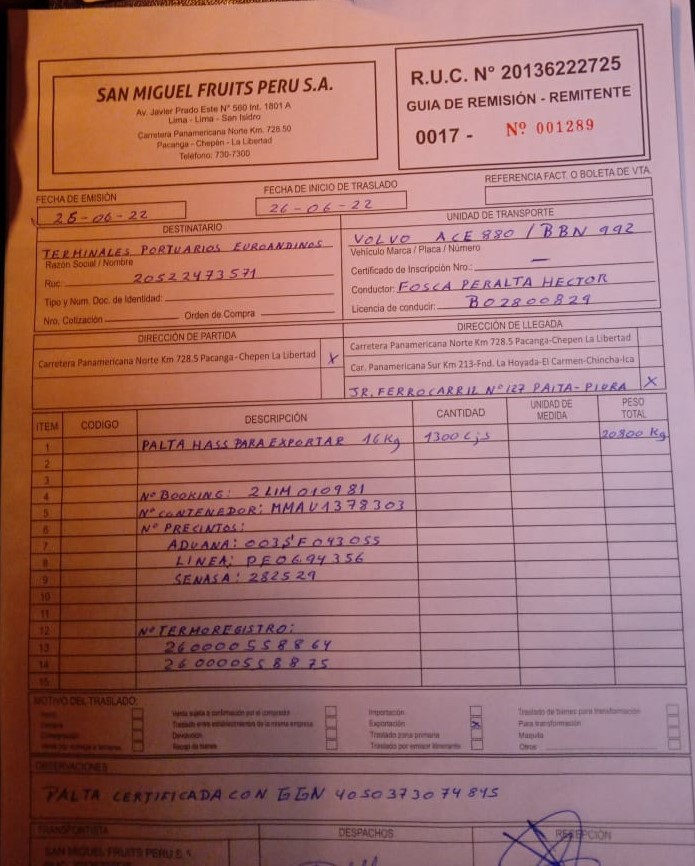 SAN MIGUEL FRUITS PERU S.A.
Av. Javier Prado Este N° 560 Int. 1801 A
Lima - Lima - San Isidro
Carretera Panamericana Norte Km. 728.50
Pacanga - Chepén - La Libertad
Teléfono: 730-7300
R.U.C. N° 20136222725
GUIA DE REMISIÓN - REMITENTE
0017 - Nº 001289
FECHA DE EMISIÓN
26-06-22
FECHA DE INICIO DE TRASLADO
26-06-22
REFERENCIA FACT. O BOLETA DE VTA.
DESTINATARIO
TERMINALES PORTUARIOS EUROANDINOS
Razón Social / Nombre
Ruc: 20522473571
Tipo y Num. Doc. de Identidad:
Nro. Cotización Orden de Compra
UNIDAD DE TRANSPORTE
VOLVO ACE 880 / BBN 992
Vehículo Marca / Placa / Número
Certificado de Inscripción Nro.: —
Conductor: FOSCA PERALTA HECTOR
Licencia de conducir: B02800829
DIRECCIÓN DE PARTIDA
Carretera Panamericana Norte Km 728.5 Pacanga-Chepen La Libertad X
DIRECCIÓN DE LLEGADA
Carretera Panamericana Norte Km 728.5 Pacanga-Chepen La Libertad
Car. Panamericana Sur Km 213-Fnd. La Hoyada-El Carmen-Chincha-Ica
JR. FERROCARRIL Nº127 PAITA-PIURA X
ITEM CODIGO DESCRIPCIÓN CANTIDAD UNIDAD DE MEDIDA PESO TOTAL
1 PALTA HASS PARA EXPORTAR 16 Kg 1300 cjs 20800 Kg
2
3
4 Nº BOOKING: 2LIM010981
5 Nº CONTENEDOR: MMAU1378303
6 Nº PRECINTOS:
7 ADUANA: 003SF043055
8 LINEA: PE0694356
9 SENASA: 282529
10
11
12 Nº TERMOREGISTRO:
13 260000558864
14 260000558875
15
MOTIVO DEL TRASLADO:
Venta sujeta a confirmación por el comprador
Traslado entre establecimientos de la misma empresa
Devolución
Recojo de bienes
Importación
Exportación X
Traslado zona primaria
Traslado por emisor itinerante
Traslado de bienes para transformación
Para transformación
Maquila
Otros
OBSERVACIONES
PALTA CERTIFICADA CON GGN 4050373074845
TRANSPORTISTA
DESPACHOS
RECEPCIÓN
SAN MIGUEL FRUITS PERU S.A.